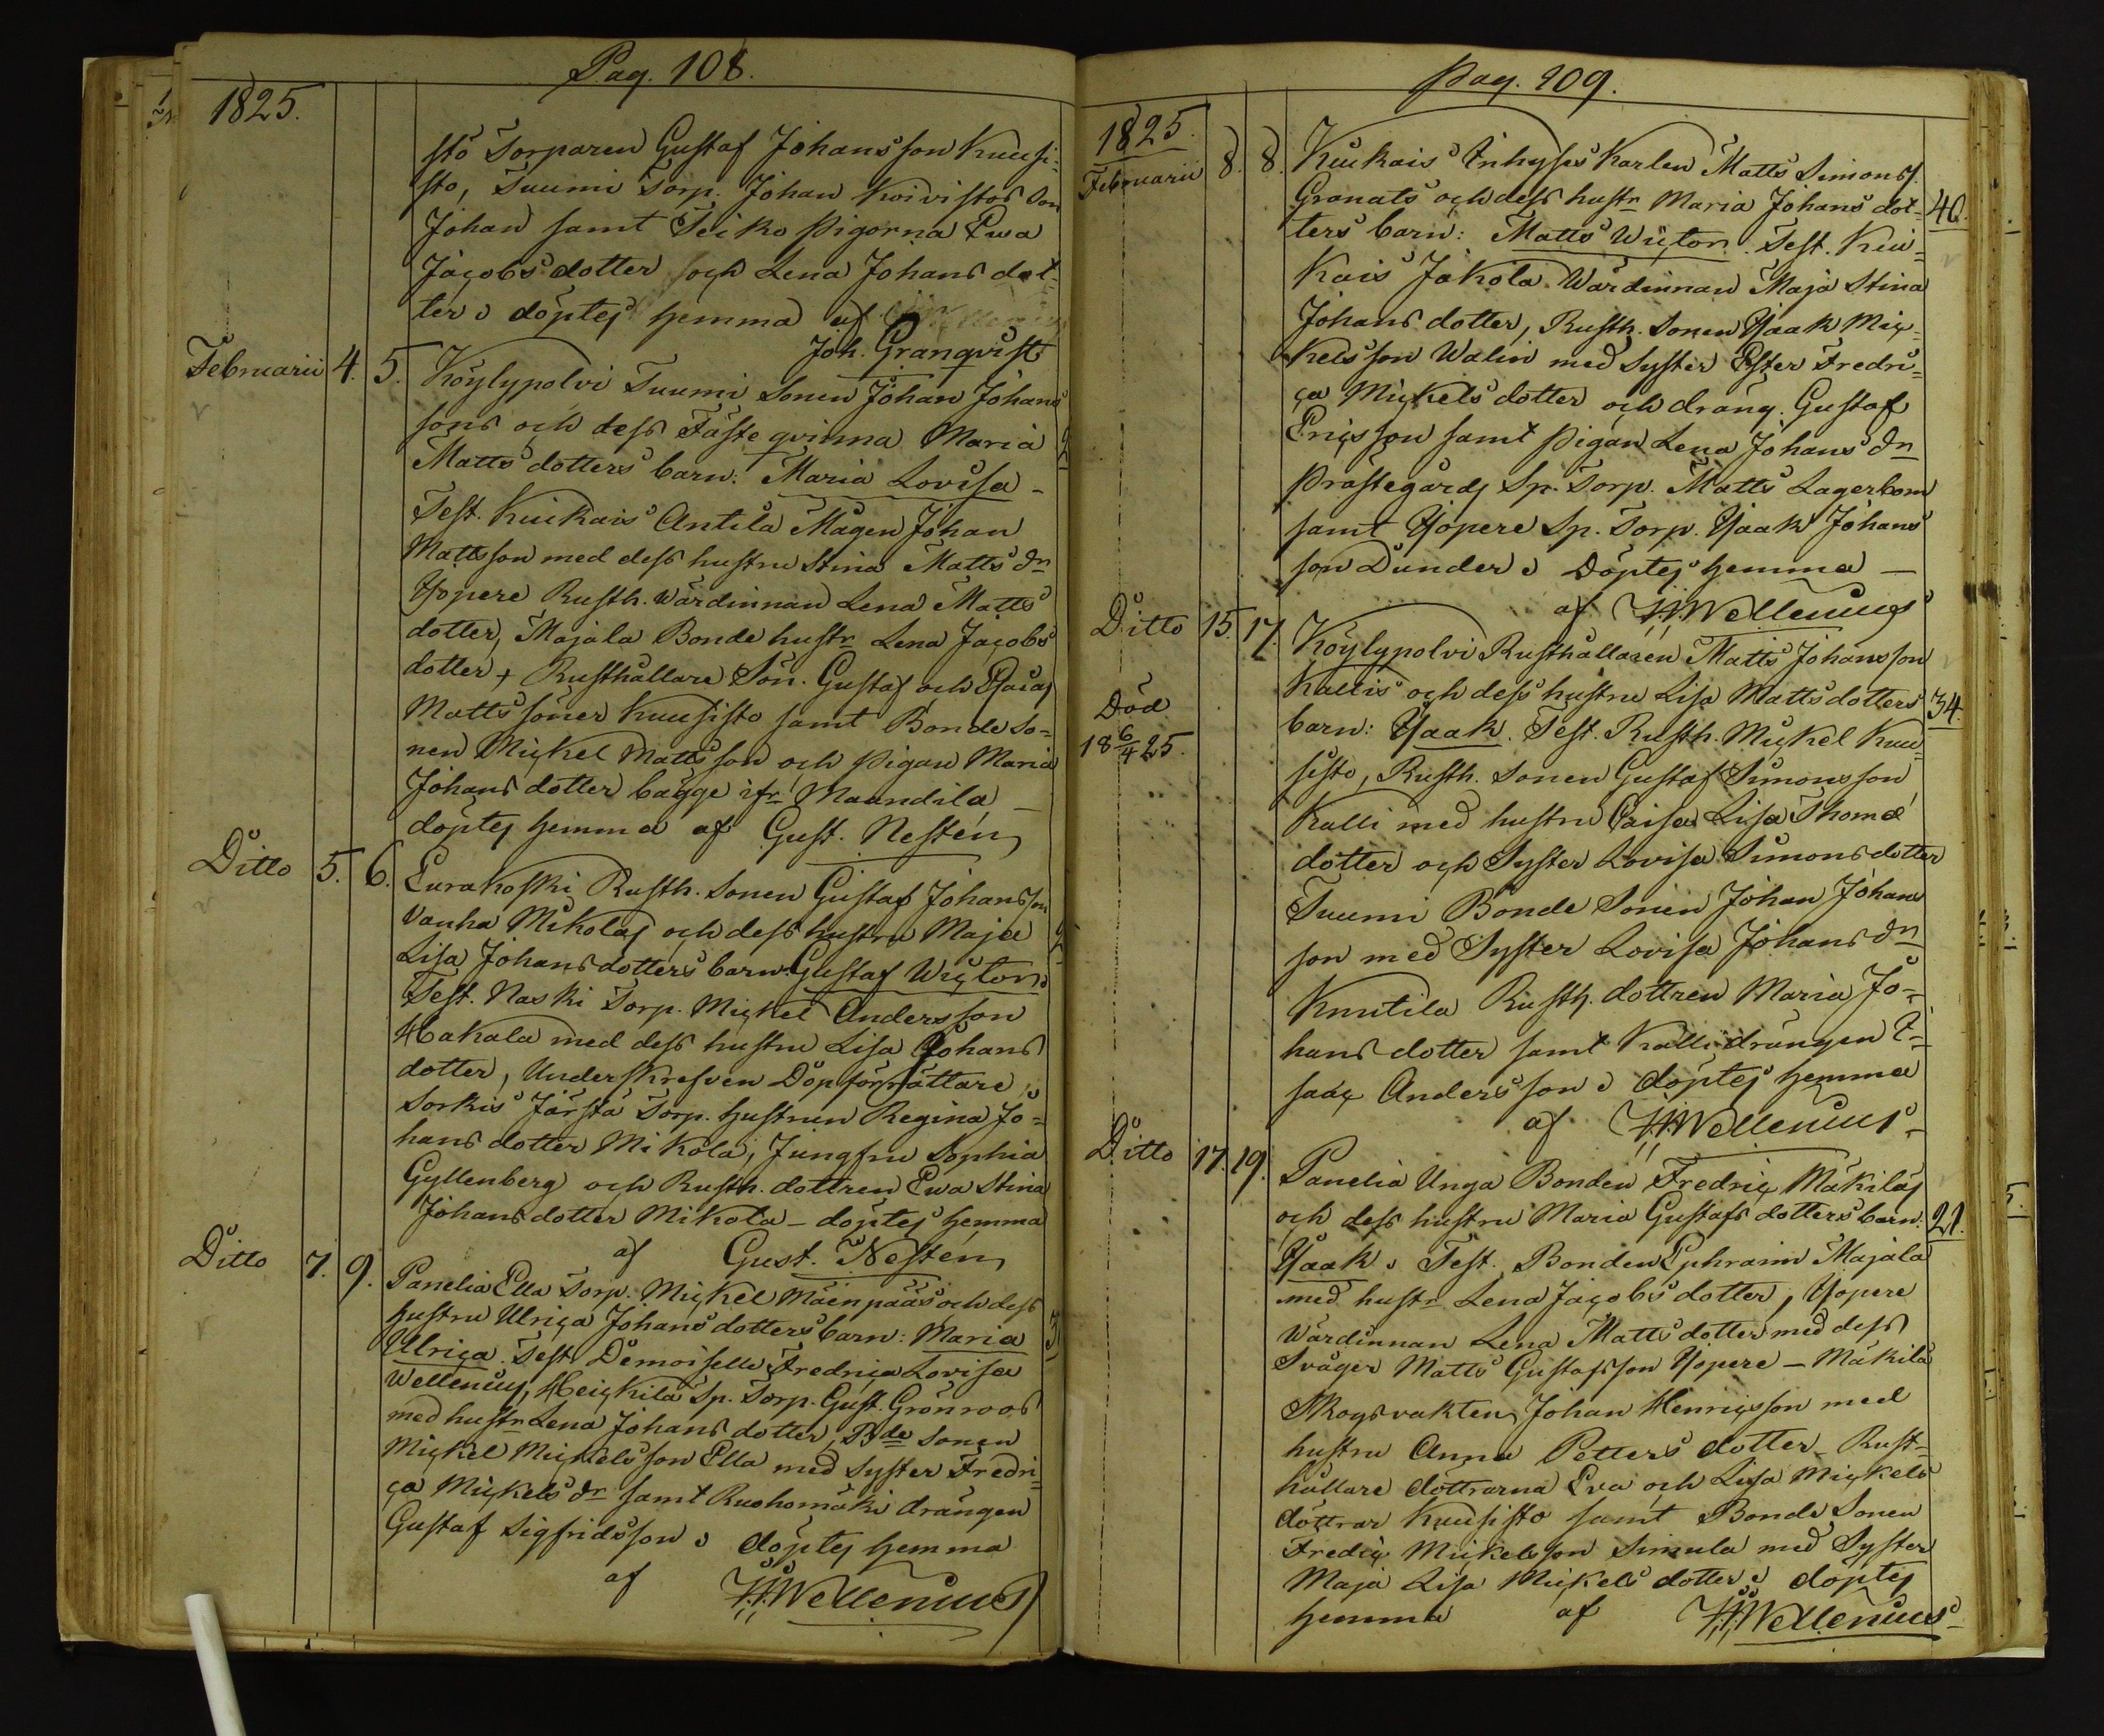 Pag. 108.
1825.
stö Torparen Gustaf Johansson Kuusi-
sto, Tuumi Torp. Johan Koivistos Son
Johan samt Teiko Pigorna Ewa
Jacobs dotter och Lena Johans dot-
ter döptes hemma af
Joh. Granqvist
Februarii 4. 5. Köylypolvi Tuumi Sonen Johan Johans
sons och dess Fästeqvinna Maria
Matts dotters barn: Maria Lovisa -
Test. Kiukais Antila Mågen Johan
Mattsson med dess hustru Stina Matts dr
Yopere Rusth. Wärdinnan Lena Matts
dotter, Majala Bonde hustr Lena Jacobs
dotter + Rusthållare Sön. Gustaf och Esaias
Matts söner Kuusisto samt Bonde So-
nen Mickel Matts son och Pigan Maria
Johans dotter bägge ifr Maandila -
döptes hemma af Gust. Nestén
Ditto 5. 6. Eurakoski Rusth. Sonen Gustaf Johansson
Vanha Mikolas och dess hustru Maja
Lisa Johans dotters barn: Gustaf Wictor.
Test. Naski Torp. Mickel Andersson
Hakala med dess hustru Lisa Johans
dotter, Underskrefven Döpförrättare,
Sorkis Järstä Torp. hustrun Regina Jo-
hans dotter Mikola, Jungfru Sophia
Gyllenberg och Rusth. dottren Ewa Stina
Johans dotter Mikola - döptes hemma
af Gust. Nestén
Ditto 7. 9. Panelia Ella Torp. Mickel Mäenpääs och dess
hustru Ulrica Johans dotters barn: Maria
Ulrica. Test. Demoiselle Fredrica Lovisa
Wellenius, Heickilä Sp. Torp. Gust. Grönroos
med hustr Lena Johans dotter, Bde Sonen
Mickel Mickelsson Ella med Syster Fredri-
ca Mickels dr samt Ruohomäki drängen
Gustaf Sigfridsson döptes hemma
af H.H. Wellenius
Pag. 109.
1825.
Februarii 8. 8. Kiukais Inhyses Karlen Matts Simons s.
Granats och dess hustr Maria Johans dot- 40.
ters barn: Matts Wictor. Test. Kiu-
kais Jakola Wärdinnan Maja Stina
Johans dotter, Rusth. Sonen Ysaak Mic-
kelsson Walin med Syster Ester Fredri-
ca Mickels dotter och dräng. Gustaf
Ericsson samt Pigan Lena Johans dr
Prästegårds Sp. Torp. Matts Lagerbom
samt Yopere Sp. Torp. Ysaak Johans
son Dunder Döptes hemma -
af H.H. Wellenius
Ditto 15. 17. Köylypolvi Rusthållaren Matts Johansson
Kallis och dess hustru Lisa Matts dotters 34.
Död
18 6/4 25.
barn: Ysaak. Test. Rusth. Mickel Kuu-
sisto, Rusth. Sonen Gustaf Simonsson
Kalli med hustru Caisa Lisa Thomæ
dotter och Syster Lovisa Simons dotter
Tuumi Bonde Sonen Johan Johans
son med Syster Lovisa Johans dr
Knutila Rusth. dottren Maria Jo-
hans dotter samt Kalli drängen I-
saac Andersson döptes hemma
af H.H. Wellenius -
Ditto 17. 19. Panelia Unga Bonden Fredric Mäkiläs
och dess hustru Maria Gustafs dotters barn: 21.
Ysaak Test. Bonden Ephraim Majala
med hustr Lena Jacobs dotter, Yopere
Wärdinnan Lena Matts dotter med dess
Svåger Matts Gustafsson Yopere - Mäkilä
Skogsvakten Johan Henricsson med
hustru Anna Petters dotter - Rust-
hållare döttrarna Eva och Lisa Mickels
döttrar Kuusisto samt Bonde Sonen
Fredric Mickelsson Simula med Syster
Maja Lisa Mickels dotter döptes
hemma af H.H. Wellenius